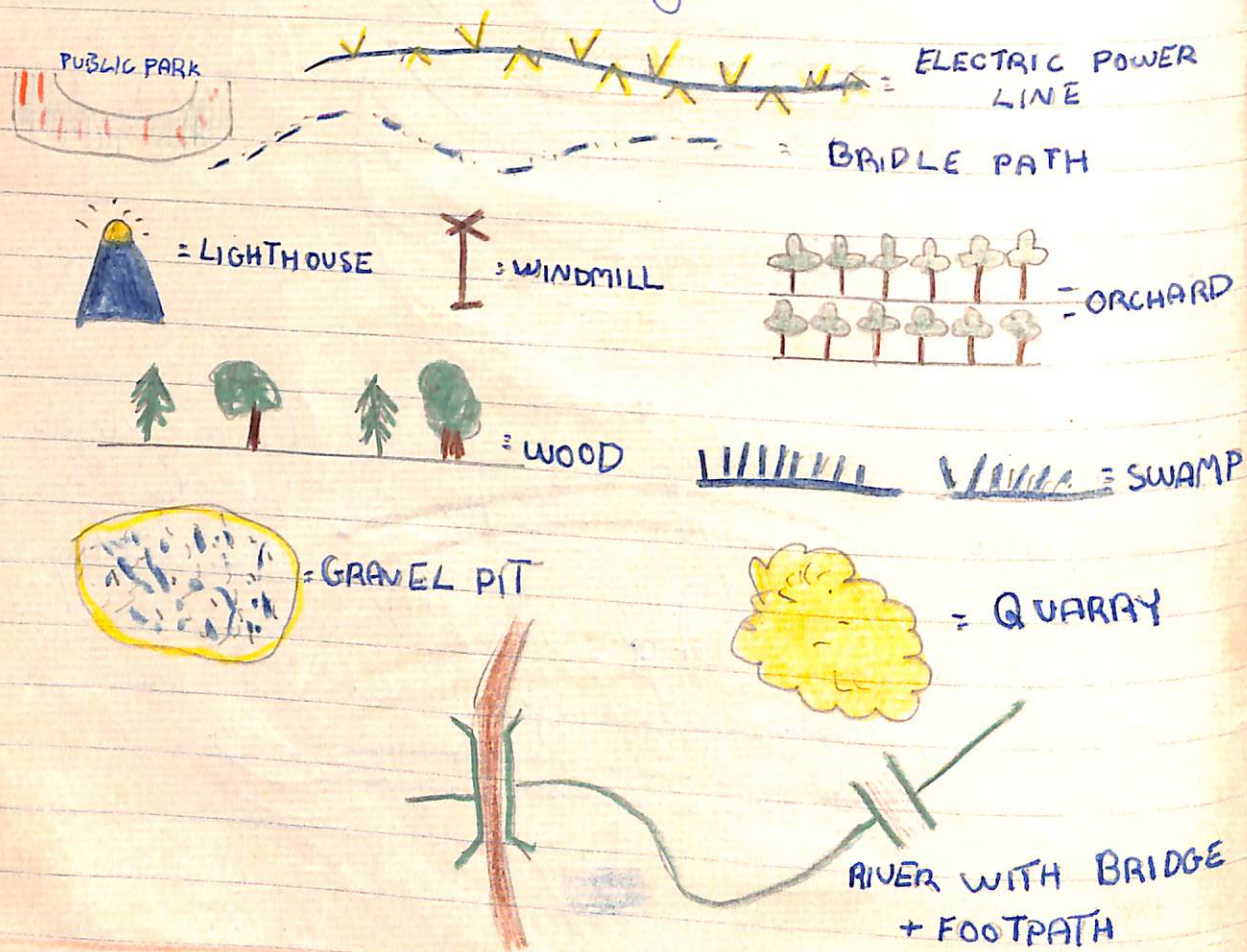 PUBLIC PARK
= ELECTRIC POWER
LINE
= BRIDLE PATH
= LIGHTHOUSE
= WINDMILL
= ORCHARD
= WOOD
= SWAMP
= GRAVEL PIT
= QUARRY
RIVER WITH BRIDGE
+ FOOTPATH